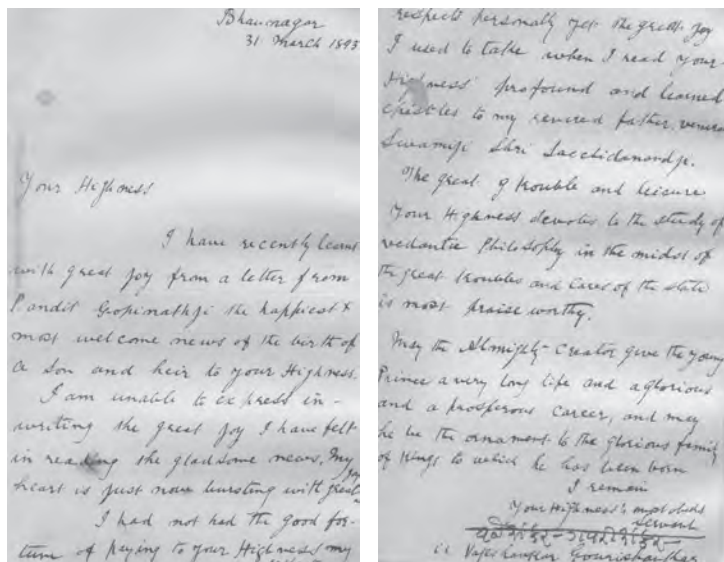 Bhaunagar
31 March 1893
Your Highness
I have recently learnt
with great joy from a letter from
Pandit Gopinathji the happiest &
most welcome news of the birth of
a Son and heir to your Highness.
I am unable to express in-
writing the great joy I have felt
in reading the gladsome news. My
heart is just now bursting with great joy
I had not had the good for-
tune of paying to your Highness my
respects personally yet the great joy
I used to take when I read your
Highness' profound and learned
epistles to my revered father,
Swamiji Shri Sacchidanandji.
The great trouble and leisure
Your Highness devotes to the study of
vedantic Philosophy in the midst of
the great troubles and cares of the state
is most praise worthy.
May the Almighty Creator give the young
Prince a very long life and a glorious
and a prosperous career, and may
he be the ornament to the glorious family
of Kings to which he has been born
I remain
Your Highness's most obdt
Servant
Vajeshankar Gourishankar